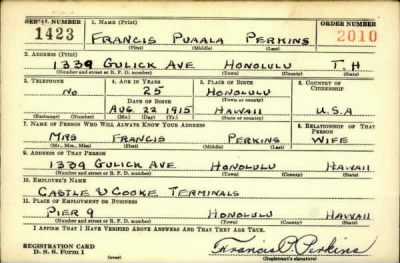 SERIAL NUMBER 1. NAME (Print) ORDER NUMBER
1423 FRANCIS PUAALA PERKINS 2010
(First) (Middle) (Last)
2. ADDRESS (Print)
1339 GULICK AVE HONOLULU T.H
(Number and street or R. F. D. number) (Town) (County) (State)
3. TELEPHONE 4. AGE IN YEARS 5. PLACE OF BIRTH 6. COUNTRY OF CITIZENSHIP
NO 25 HONOLULU
DATE OF BIRTH (Town or county)
AUG 22 1915 HAWAII U.S.A
(Exchange) (Number) (Mo.) (Day) (Yr.) (State or country)
7. NAME OF PERSON WHO WILL ALWAYS KNOW YOUR ADDRESS 8. RELATIONSHIP OF THAT PERSON
MRS FRANCIS PERKINS WIFE
(Mr., Mrs., Miss) (First) (Middle) (Last)
9. ADDRESS OF THAT PERSON
1339 GULICK AVE HONOLULU HAWAII
(Number and street or R. F. D. number) (Town) (County) (State)
10. EMPLOYER'S NAME
CASTLE & COOKE TERMINALS
11. PLACE OF EMPLOYMENT OR BUSINESS
PIER 9 HONOLULU HAWAII
(Number and street or R. F. D. number) (Town) (County) (State)
I AFFIRM THAT I HAVE VERIFIED ABOVE ANSWERS AND THAT THEY ARE TRUE.
REGISTRATION CARD
D. S. S. Form 1 Francis P. Perkins
(over) (Registrant's signature)